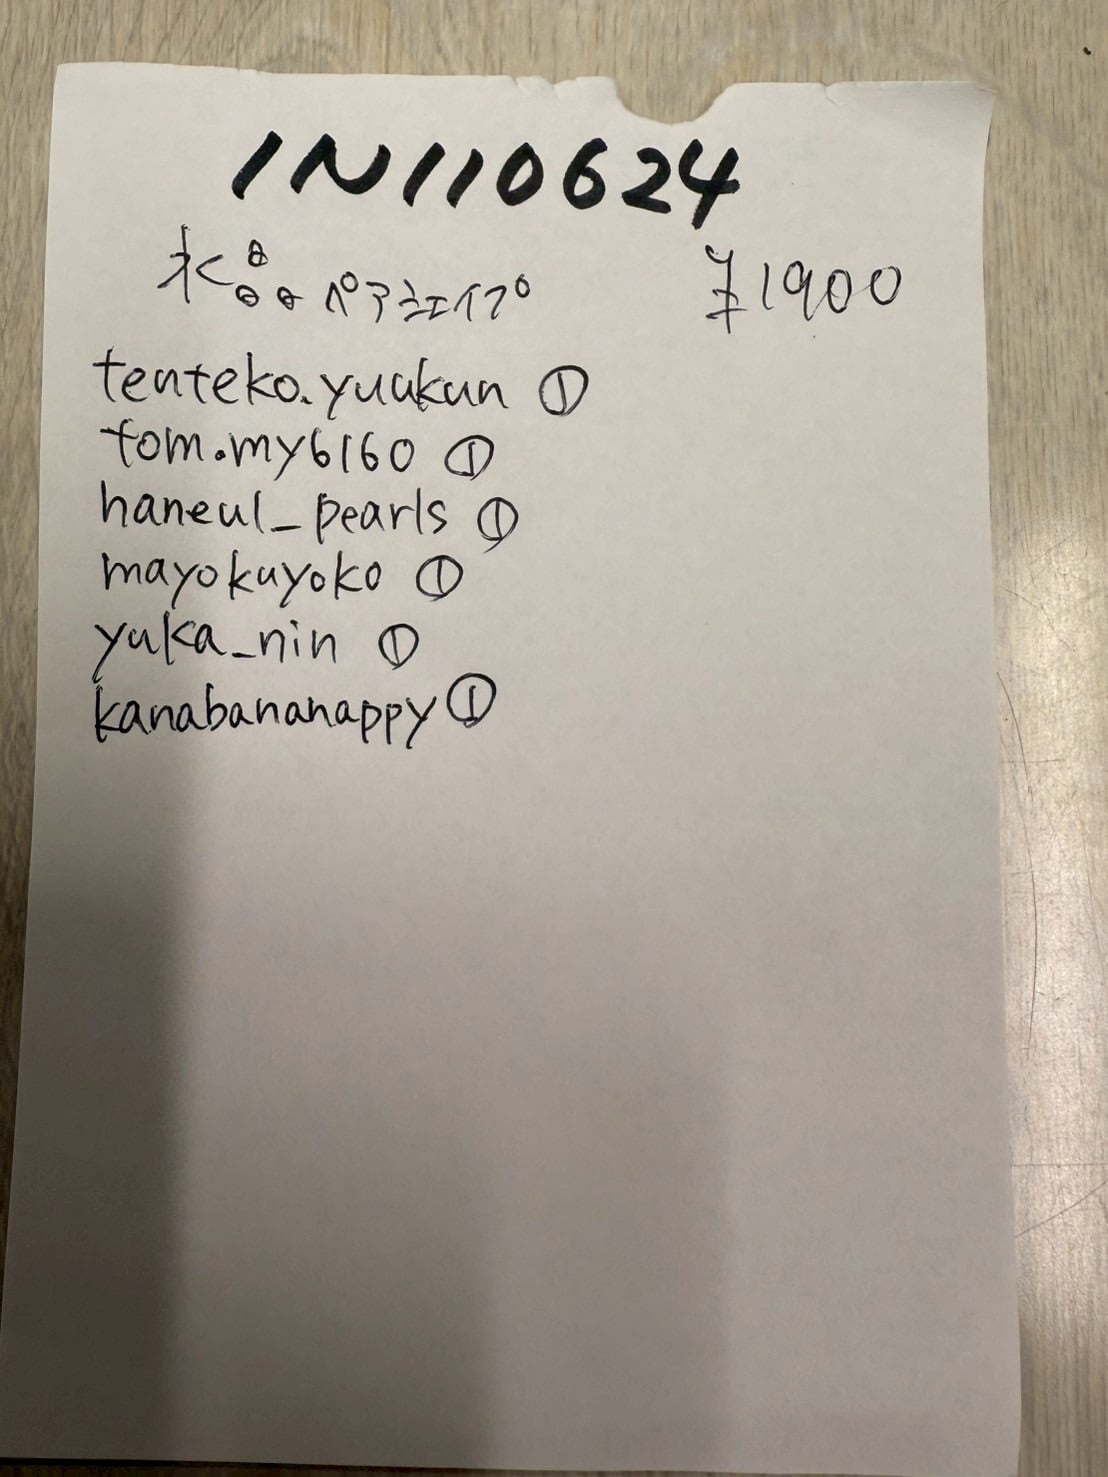 IN110624
水晶ペアシェイプ ¥1900
tenteko.yuukun ①
tom.my6160 ①
haneul_pearls ①
mayokuyoko ①
yuka_nin ①
kanabananappy ①